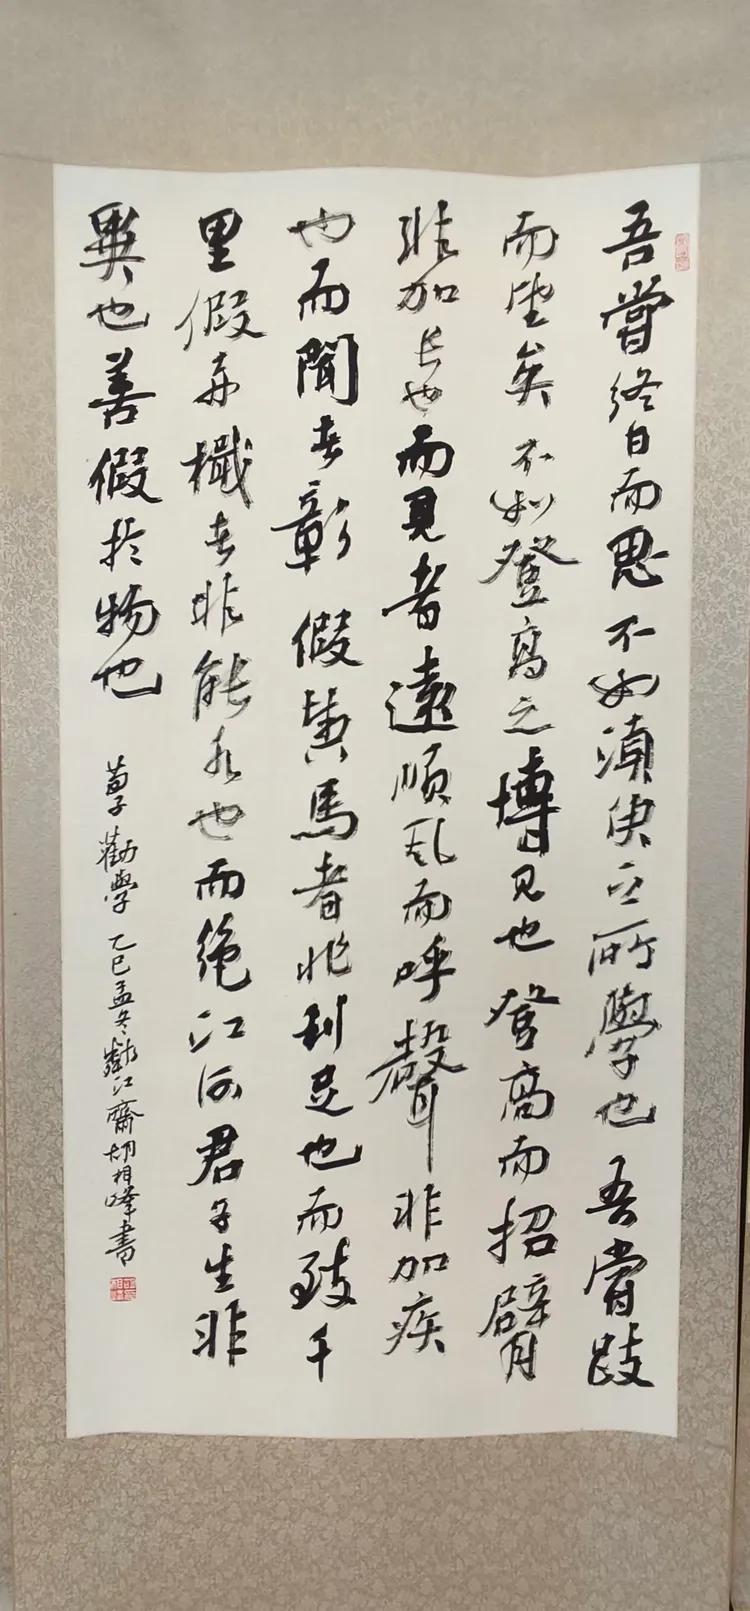 吾嘗終日而思不如湏臾之所學也吾嘗跂
而望矣不如登高之博見也登高而招臂
非加長也而見者遠順風而呼聲非加疾
也而聞者彰假輿馬者非利足也而致千
里假舟檝者非能水也而絶江河君子生非
異也善假於物也
荀子勸學 乙巳孟冬江齋胡相峰書